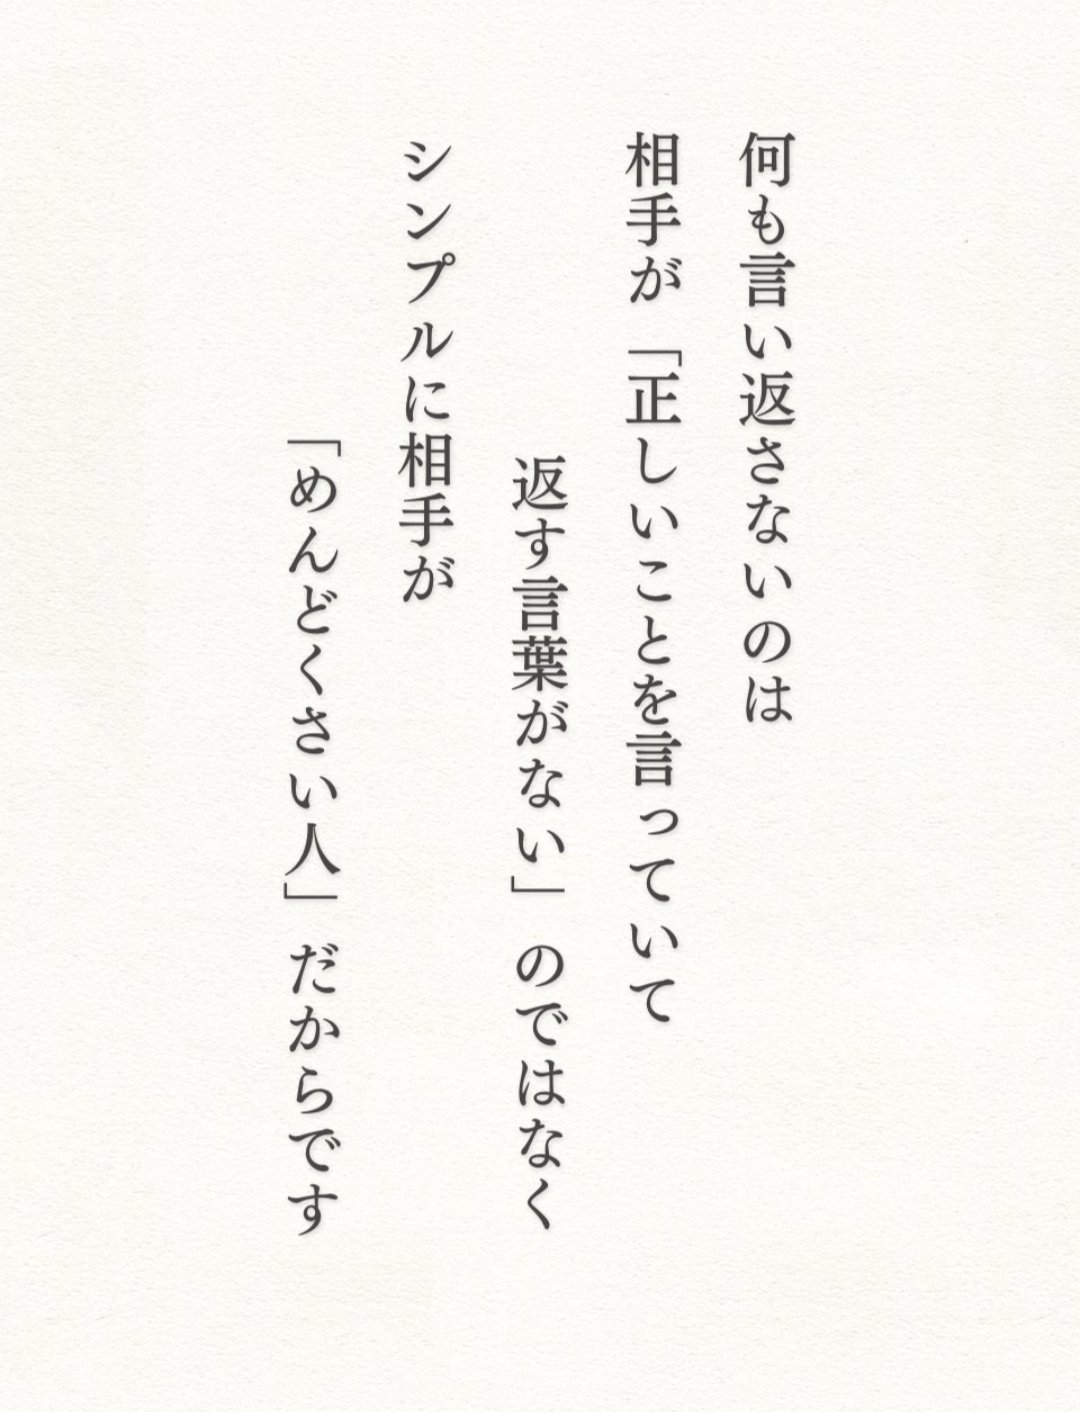 何も言い返さないのは
相手が「正しいことを言っていて
返す言葉がない」のではなく
シンプルに相手が
「めんどくさい人」だからです